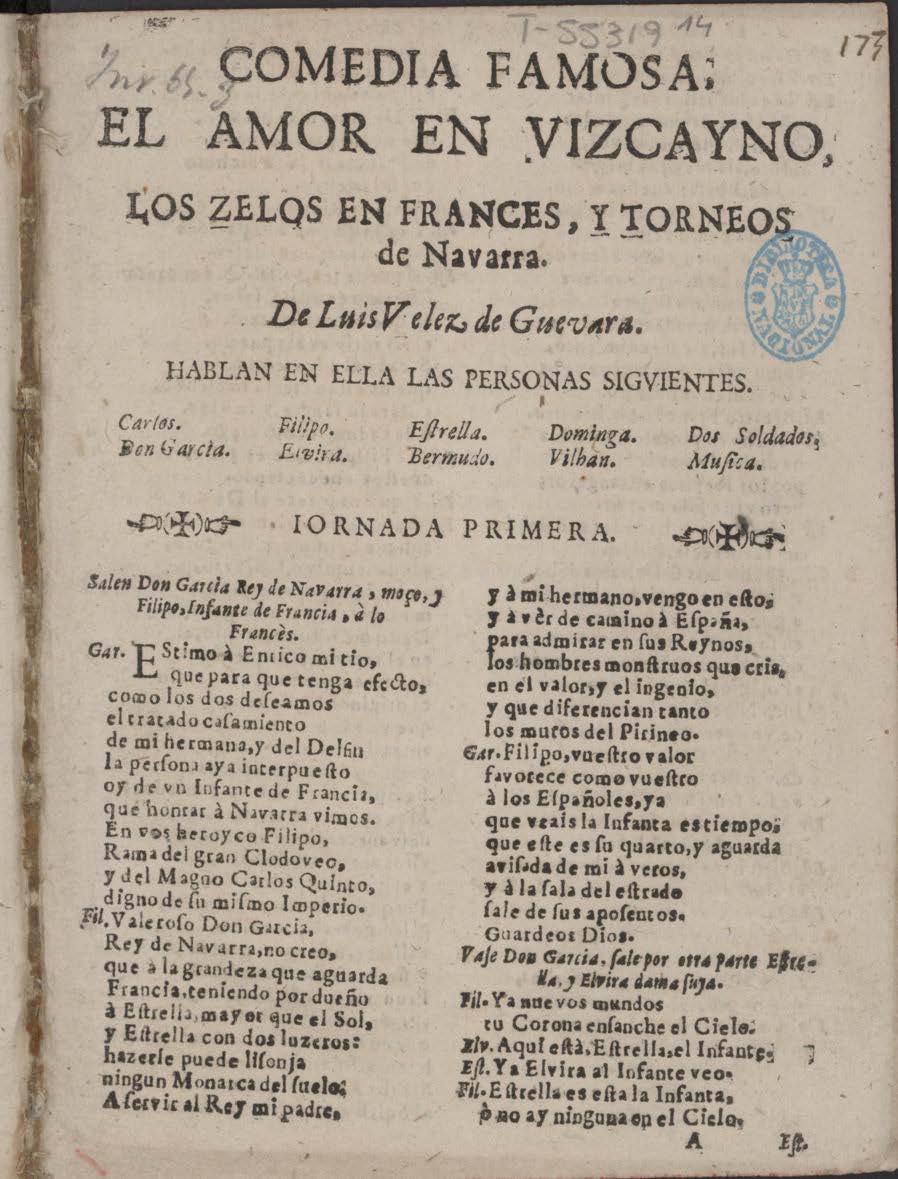 T-55319 14
173
COMEDIA FAMOSA;
EL AMOR EN VIZCAYNO,
LOS ZELOS EN FRANCES, Y TORNEOS
de Navarra.
De Luis Velez de Guevara.
HABLAN EN ELLA LAS PERSONAS SIGVIENTES.
Carlos. Filipo. Eſtrella. Dominga. Dos Soldados;
Don Garcia. Elvira. Bermudo. Vilhan. Muſica.
IORNADA PRIMERA.
Salen Don Garcia Rey de Navarra, moço, y
Filipo, Infante de Francia, à lo
Francès.
Gar. EStimo à Enrico mi tio,
que para que tenga efecto,
como los dos deſeamos
el tratado caſamiento
de mi hermana, y del Delfin
la perſona aya interpueſto
oy de vn Infante de Francia,
que honrar à Navarra vimos.
En vos heroyco Filipo,
Rama del gran Clodoveo,
y del Magno Carlos Quinto,
digno de ſu miſmo Imperio.
Fil. Valeroſo Don Garcia,
Rey de Navarra, no creo,
que à la grandeza que aguarda
Francia, teniendo por dueño
à Eſtrella, mayor que el Sol,
y Eſtrella con dos luzeros:
hazerſe puede liſonja
ningun Monarca del ſuelo;
A ſervir al Rey mi padre,
y à mi hermano, vengo en eſto;
y à vèr de camino à Eſpaña,
para admirar en ſus Reynos,
los hombres monſtruos que cria,
en el valor, y el ingenio,
y que diferencian tanto
los muros del Pirineo.
Gar. Filipo, vueſtro valor
favorece como vueſtro
à los Eſpañoles, ya
que veais la Infanta es tiempo;
que eſte es ſu quarto, y aguarda
aviſada de mi à veros,
y à la ſala del eſtrado
ſale de ſus apoſentos.
Guardeos Dios.
Vaſe Don Garcia, ſale por otra parte Eſtre-
lla, y Elvira dama ſuya.
Fil. Ya nuevos mundos
tu Corona enſanche el Cielo.
Elv. Aqui eſtà, Eſtrella, el Infante;
Eſt. Ya Elvira al Infante veo.
Fil. Eſtrella es eſta la Infanta,
ò no ay ninguna en el Cielo.
A Eſt.